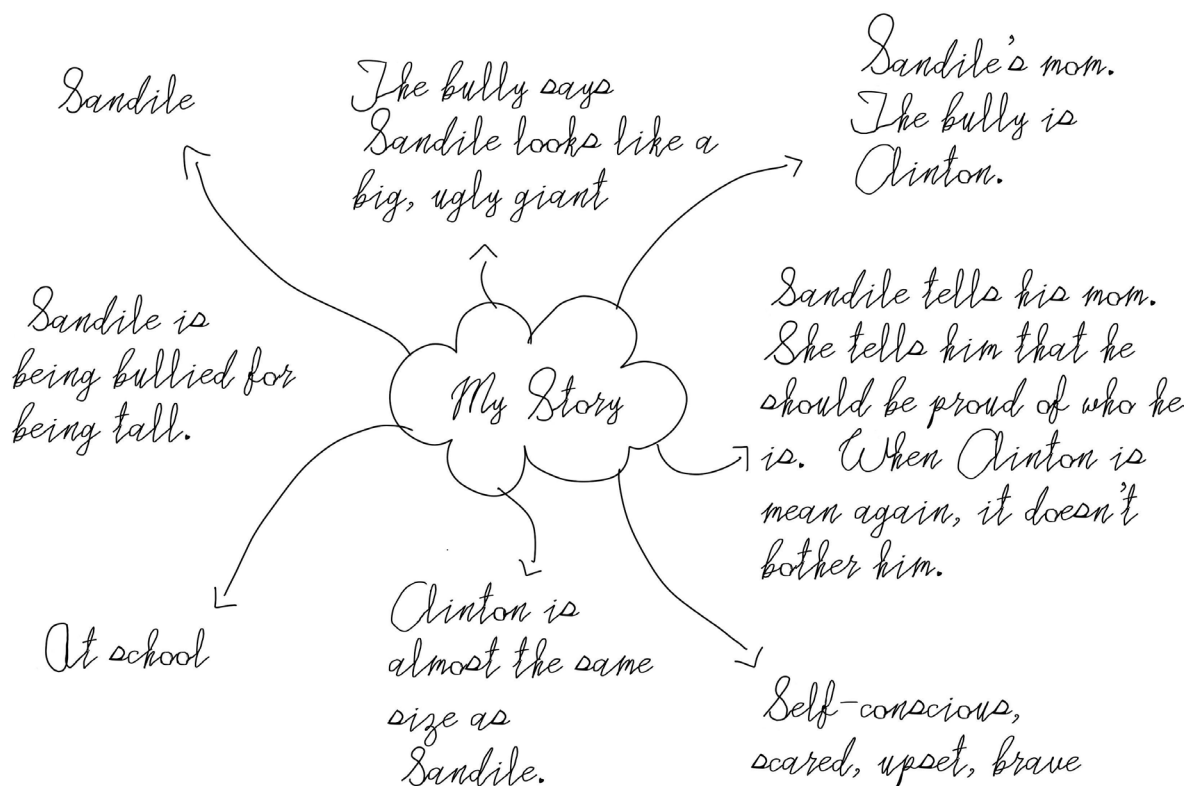 Sandile
The bully says
Sandile looks like a
big, ugly giant
Sandile's mom.
The bully is
Clinton.
Sandile is
being bullied for
being tall.
My Story
Sandile tells his mom.
She tells him that he
should be proud of who he
is. When Clinton is
mean again, it doesn't
bother him.
At school
Clinton is
almost the same
size as
Sandile.
Self-conscious,
scared, upset, brave